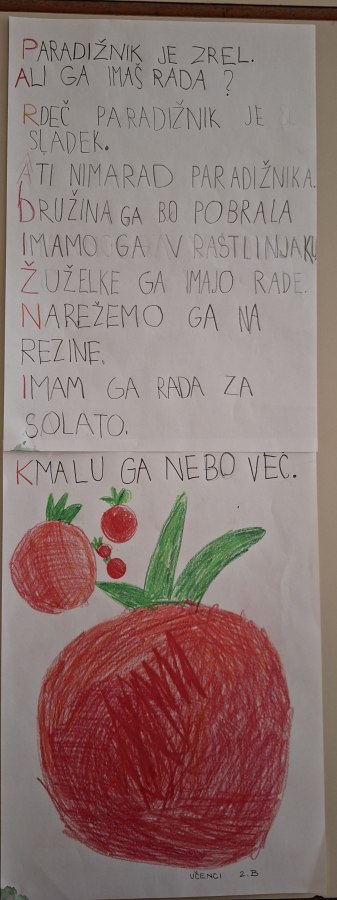 PARADIŽNIK JE ZREL.
ALI GA IMAŠ RADA ?
RDEČ PARADIŽNIK JE
SLADEK.
ATI NIMARAD PARADIŽNIKA.
DRUŽINA GA BO POBRALA
IMAMO GA V RASTLINJAKU
ŽUŽELKE GA IMAJO RADE.
NAREŽEMO GA NA
REZINE.
IMAM GA RADA ZA
SOLATO.
KMALU GA NEBO VEČ.
UČENCI 2.B